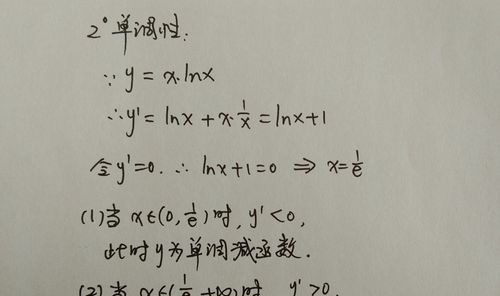 2° 单调性.
∵ y = x·lnx
∴ y' = lnx + x·1/x = lnx+1
令y'=0. ∴ lnx+1=0 ⇒ x=1/e
(1)当 x∈(0, 1/e)时, y'<0,
此时y为单调减函数.
(2)当 x∈(1/e, +∞)时, y'>0,